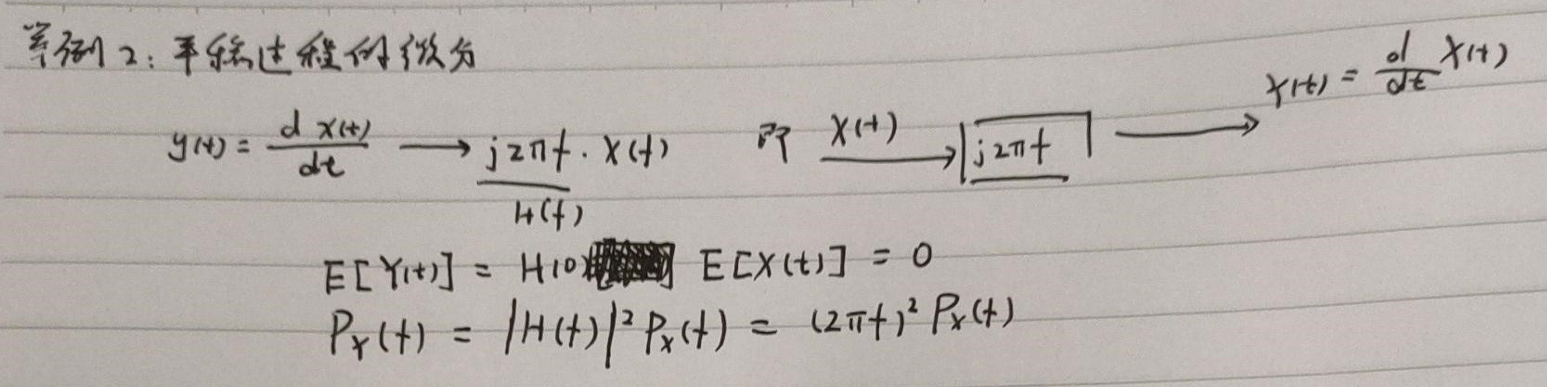 例2:平稳过程的微分
y(t) = d X(t) / dt → j2πf · X(f) 即 X(t) → j2πf → Y(t) = d/dt X(t)
H(f)
E[Y(t)] = H(0) E[X(t)] = 0
P_Y(f) = |H(f)|² P_X(f) = (2πf)² P_X(f)